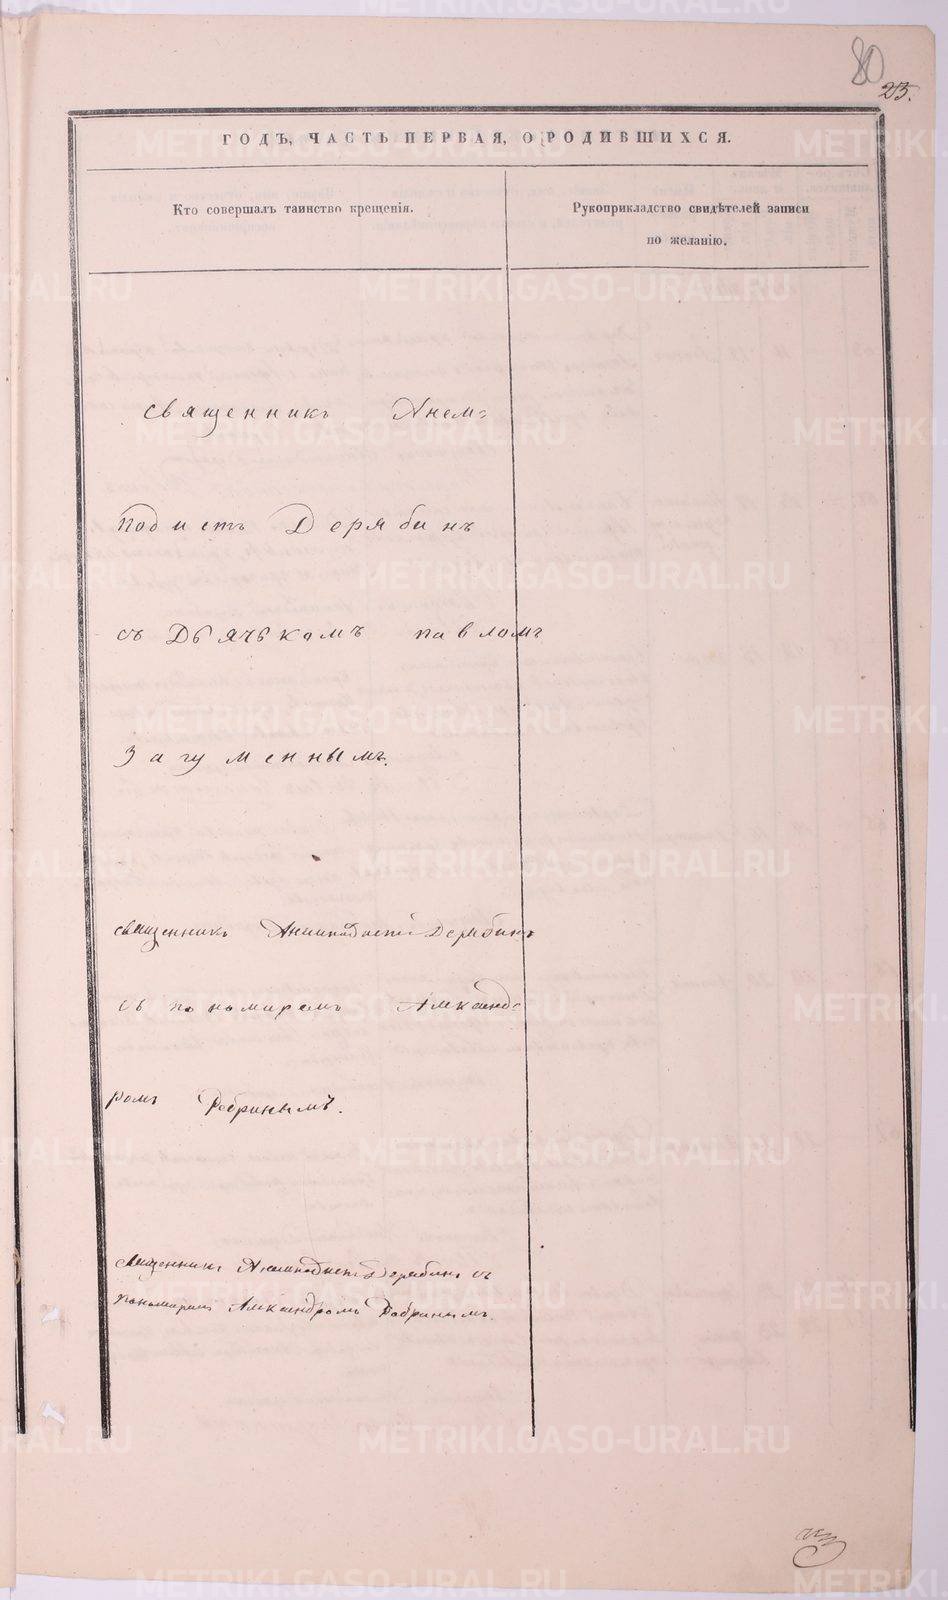 80
23.
ГОДЪ, ЧАСТЬ ПЕРВАЯ, О РОДИВШИХСЯ.
Кто совершалъ таинство крещенія.
Рукоприкладство свидѣтелей записи
по желанію.
священникъ Анем=
подистъ Дерябинъ
съ Дьячькомъ павломъ
Загуменнымъ.
священникъ Анемподистъ Дерябинъ
съ пономиремъ Александ=
ромъ
священникъ Анемподистъ Дерябинъ съ
пономиремъ Александромъ
METRIKI.GASO-URAL.RU